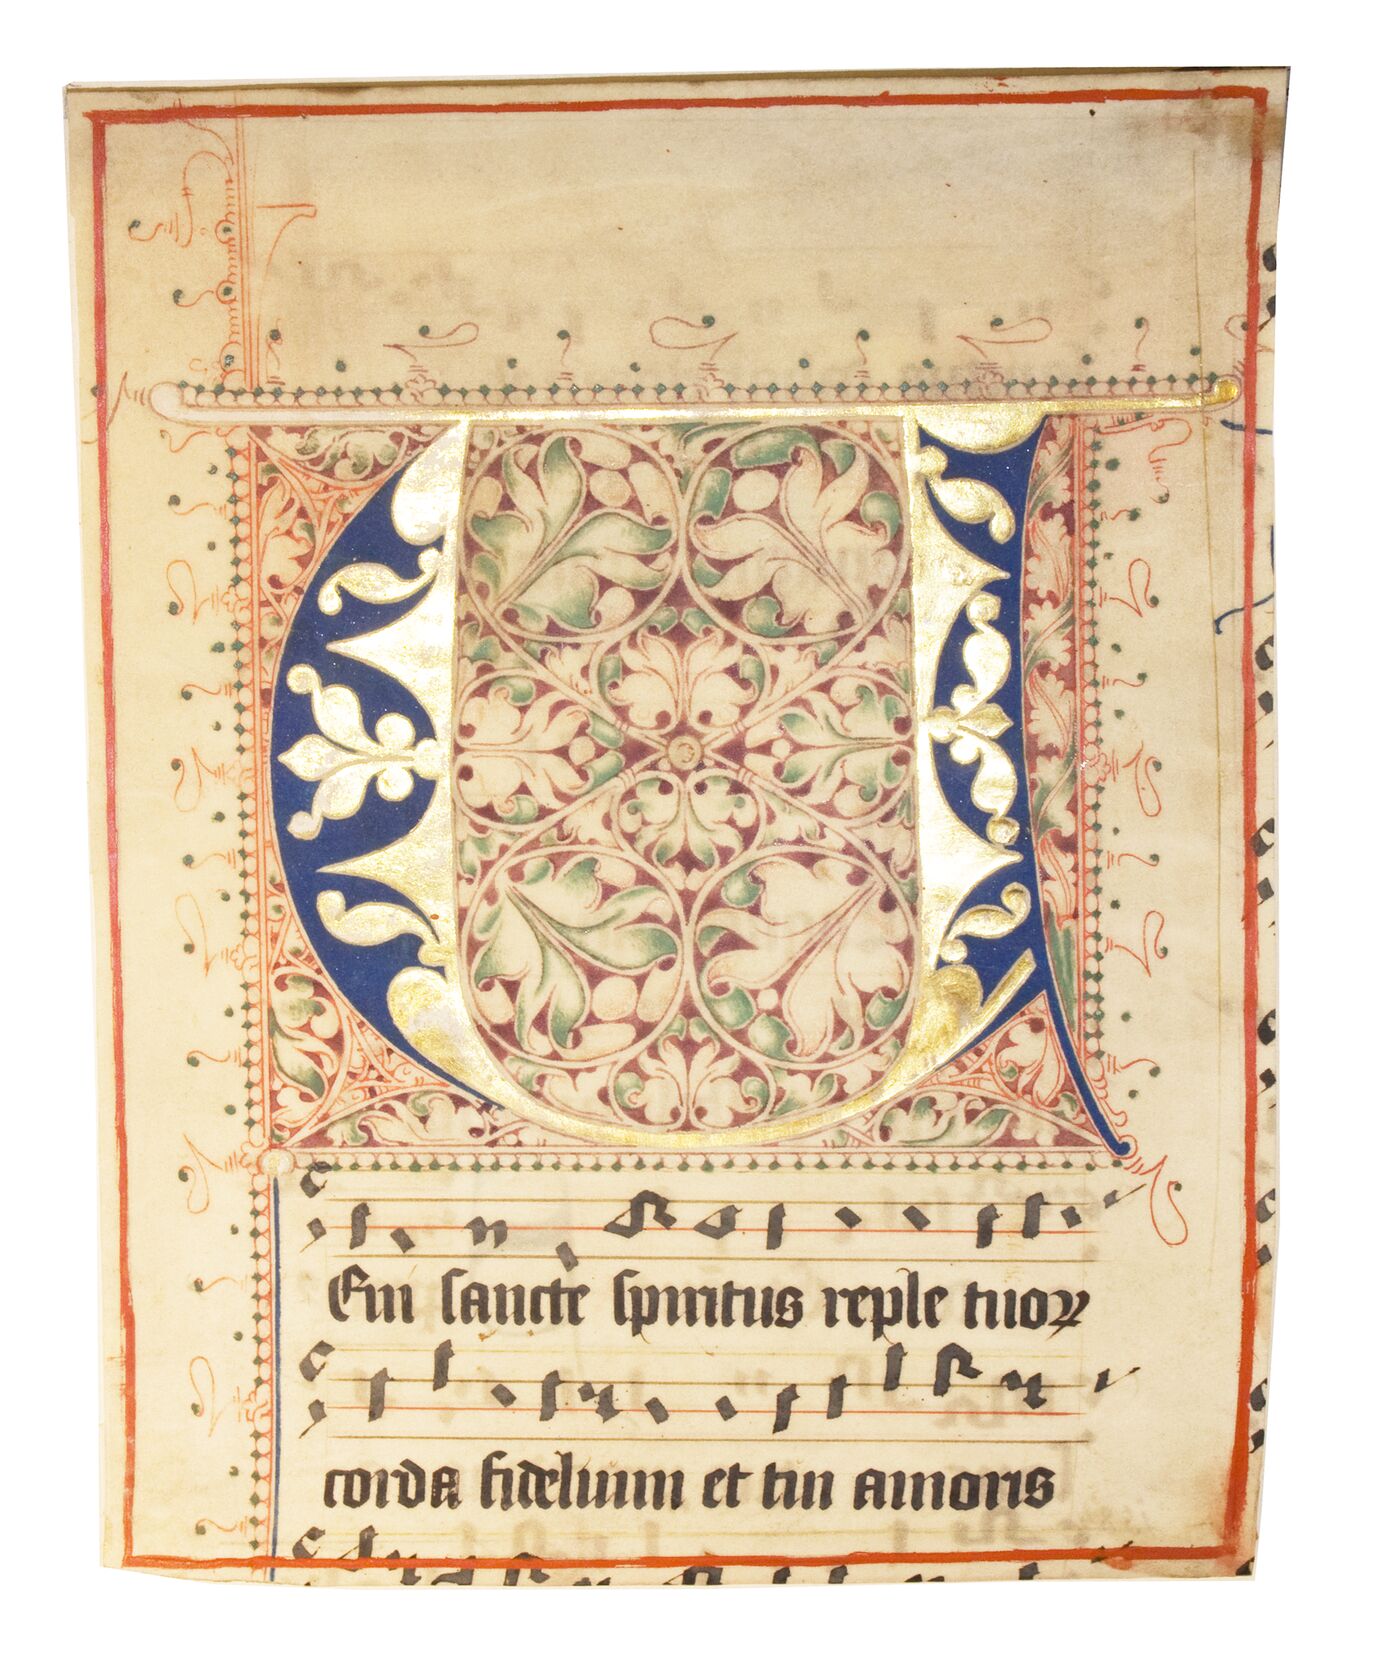 V
Eni sancte spiritus reple tuoꝝ
corda fidelium et tui amoris